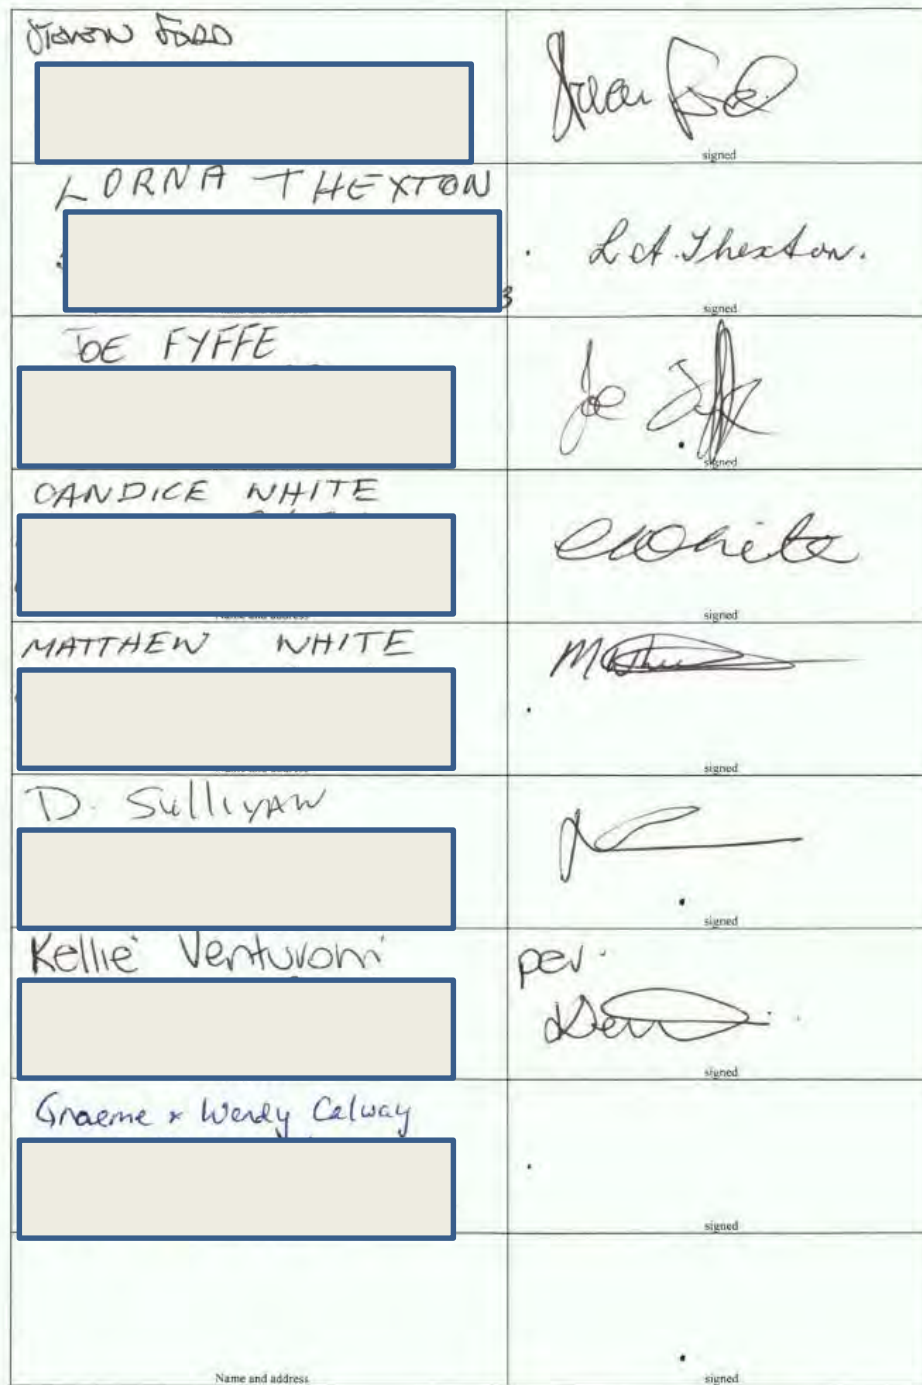 STEVEN FORD
Steven Ford
signed
LORNA THEXTON
L A Thexton.
3
signed
JOE FYFFE
Joe
signed
CANDICE WHITE
CWhite
Name and address
signed
MATTHEW WHITE
signed
Name and address
D. Sullivan
signed
Kellie Venturoni
per.
signed
Graeme & Wendy Calway
signed
Name and address
signed